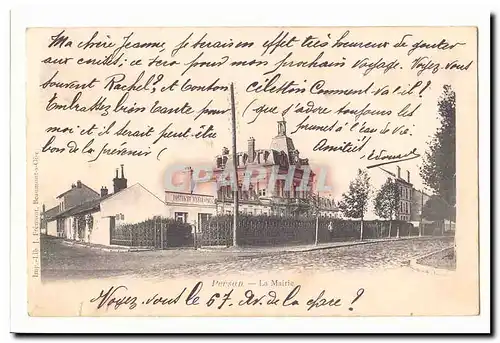 Ma chère Jeanne, je serais en effet très heureux de gouter
aux conditi; ce sera pour mon prochain voyage. Voyez-vous
souvent Rachel? et Tonton Célestin Comment va t'il?
Embrassez bien tante pour
(que j'adore toujours les
moi et il serait peut-être
prunes à l'eau de vie.
bon de la prévenir
Amitiés
Edouard
CPHISTORIA
Imp.-Lib. J. Frémont, Beaumont-s-Oise
Persan — La Mairie
Voyez-vous le 57 Av. de la gare?